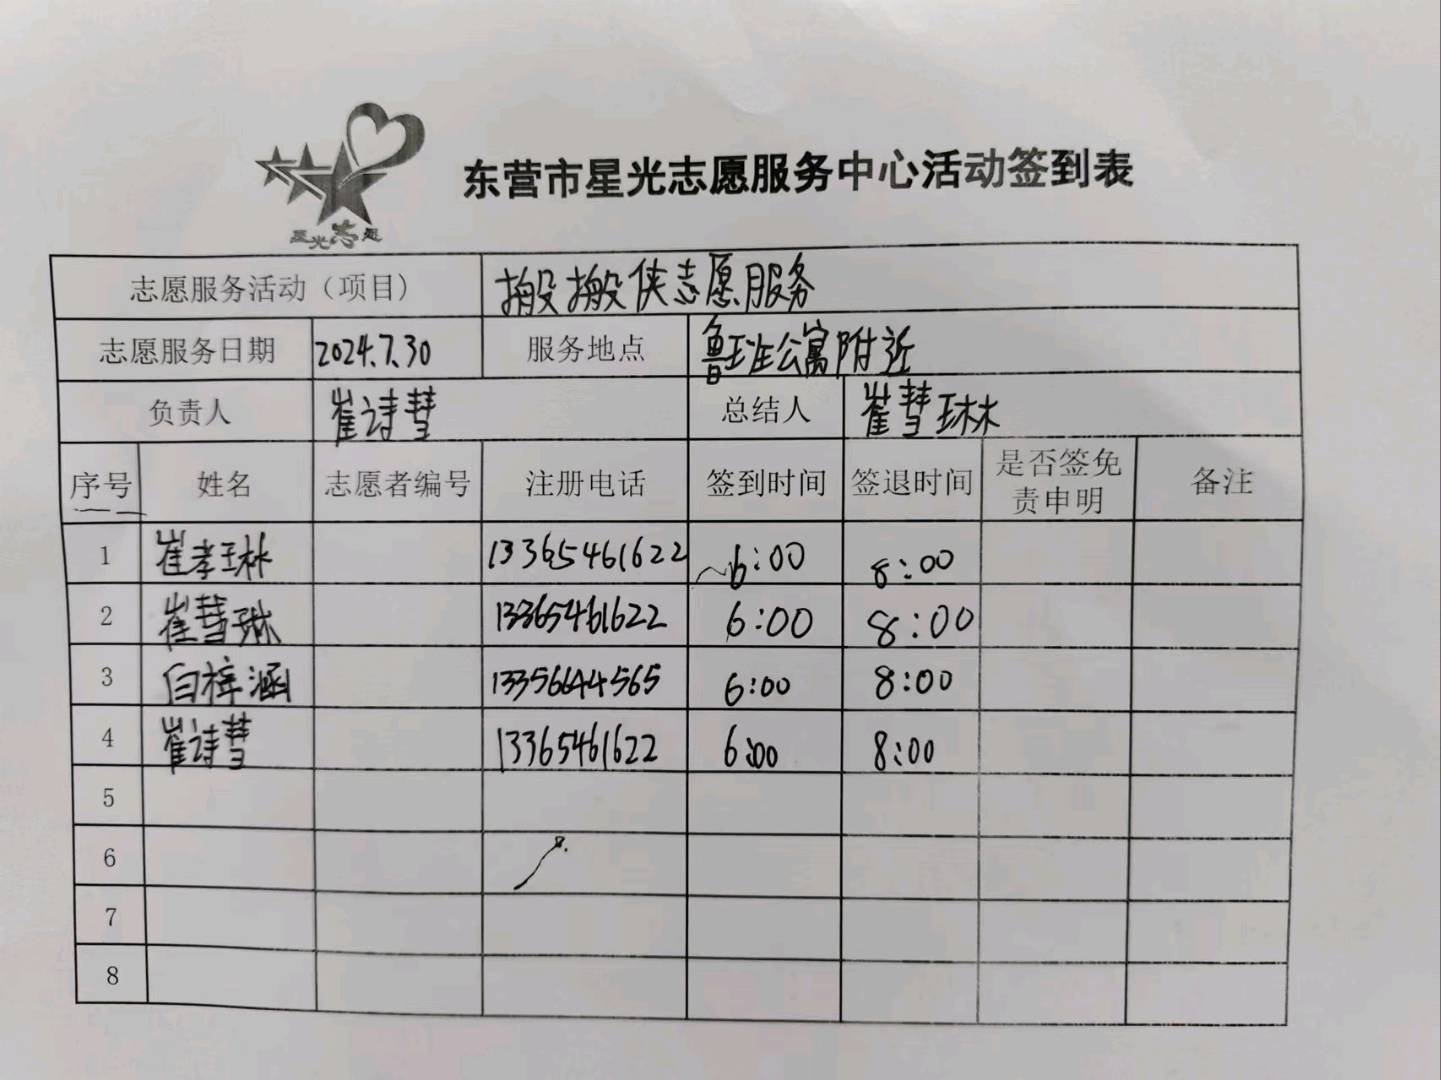 星光志愿
东营市星光志愿服务中心活动签到表
志愿服务活动（项目） 搬搬侠志愿服务
志愿服务日期 2024.7.30 服务地点 鲁班公寓附近
负责人 崔诗彗 总结人 崔彗琳
序号 姓名 志愿者编号 注册电话 签到时间 签退时间 是否签免责申明 备注
1 崔孝琳 13365461622 6:00 8:00
2 崔彗琳 13365461622 6:00 8:00
3 白梓涵 13356644565 6:00 8:00
4 崔诗彗 13365461622 6:00 8:00
5
6
7
8